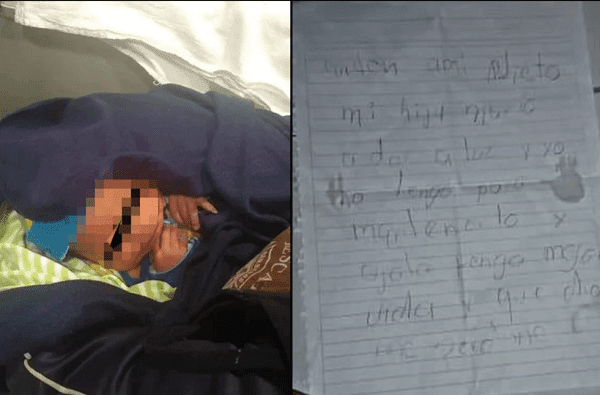 cuiden ami Nieto
mi hija murio
a dar a luz y yo
no tengo para
mantenerlo y
ojala tenga mejor
vida y que dios